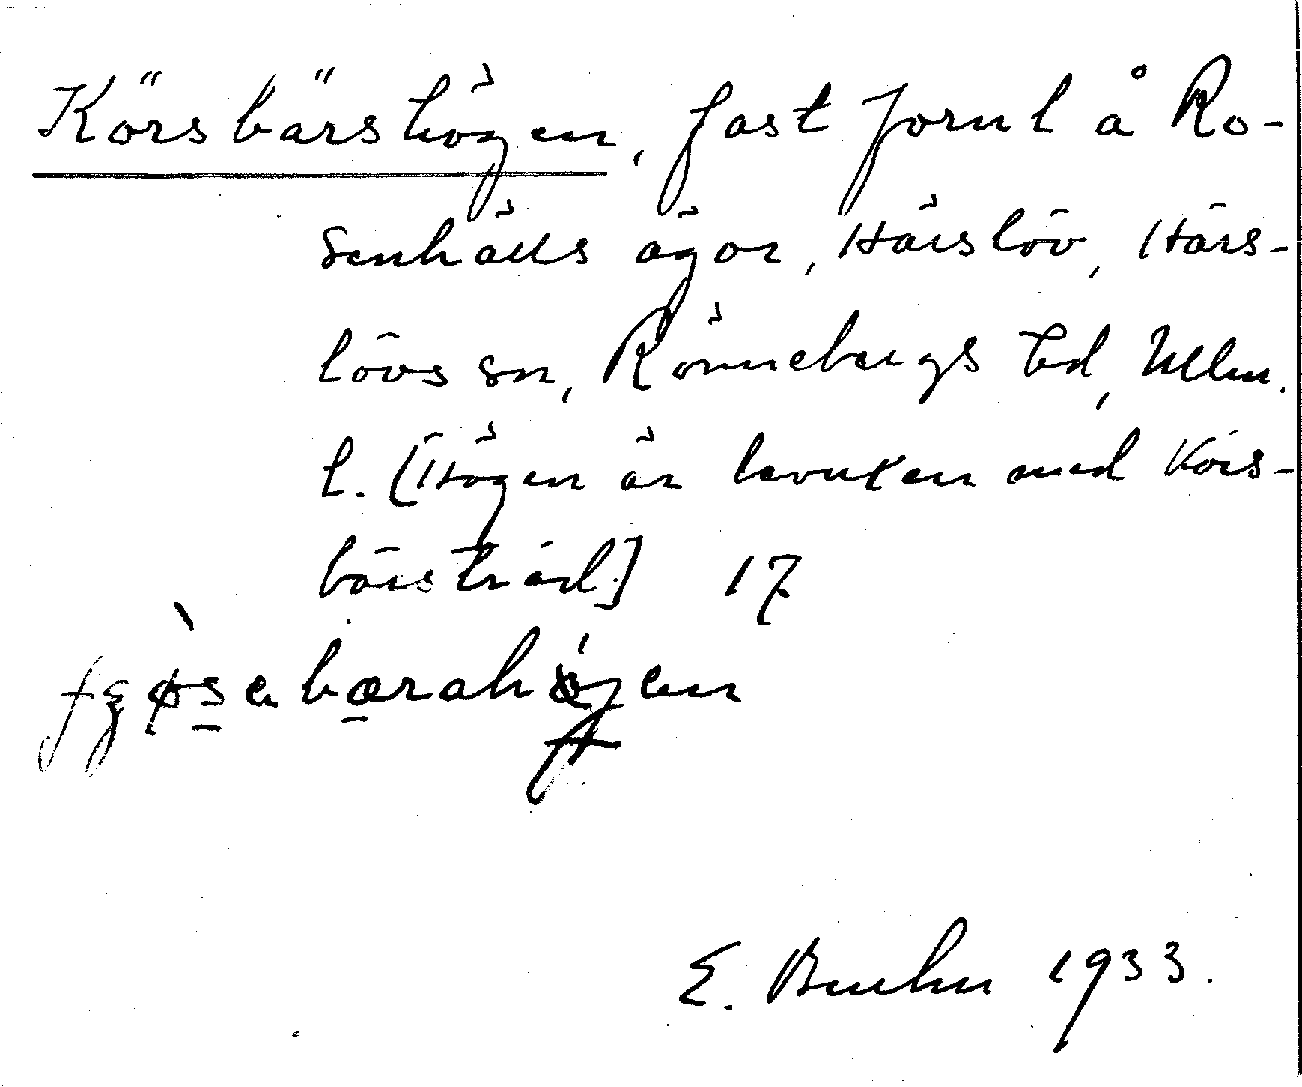 Körsbärshögen, fast fornl å Ro-
senhälls ägor, Härslöv, Härs-
lövs sn, Rönnebergs hd, Mlm.
l. [Högen är bevuxen med körs-
bärsträd] 17
bærahøgen
E. 1933.